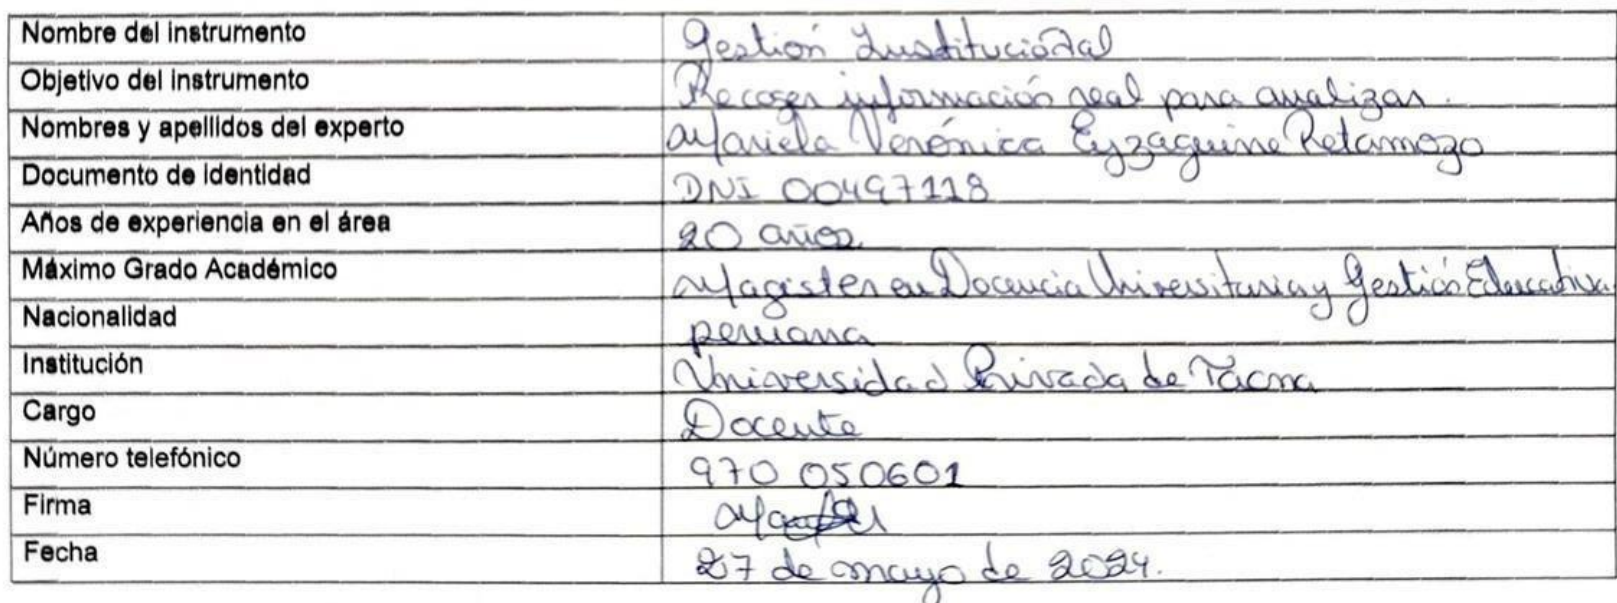 Nombre del instrumento Gestión Institucional
Objetivo del instrumento Recoger información real para analizar.
Nombres y apellidos del experto Mariela Verónica Eyzaguirre Retamozo
Documento de identidad DNI 00497118
Años de experiencia en el área 20 años
Máximo Grado Académico Magister en Docencia Universitaria y Gestión Educativa
Nacionalidad peruana
Institución Universidad Privada de Tacna
Cargo Docente
Número telefónico 970 050601
Firma
Fecha 27 de mayo de 2024.